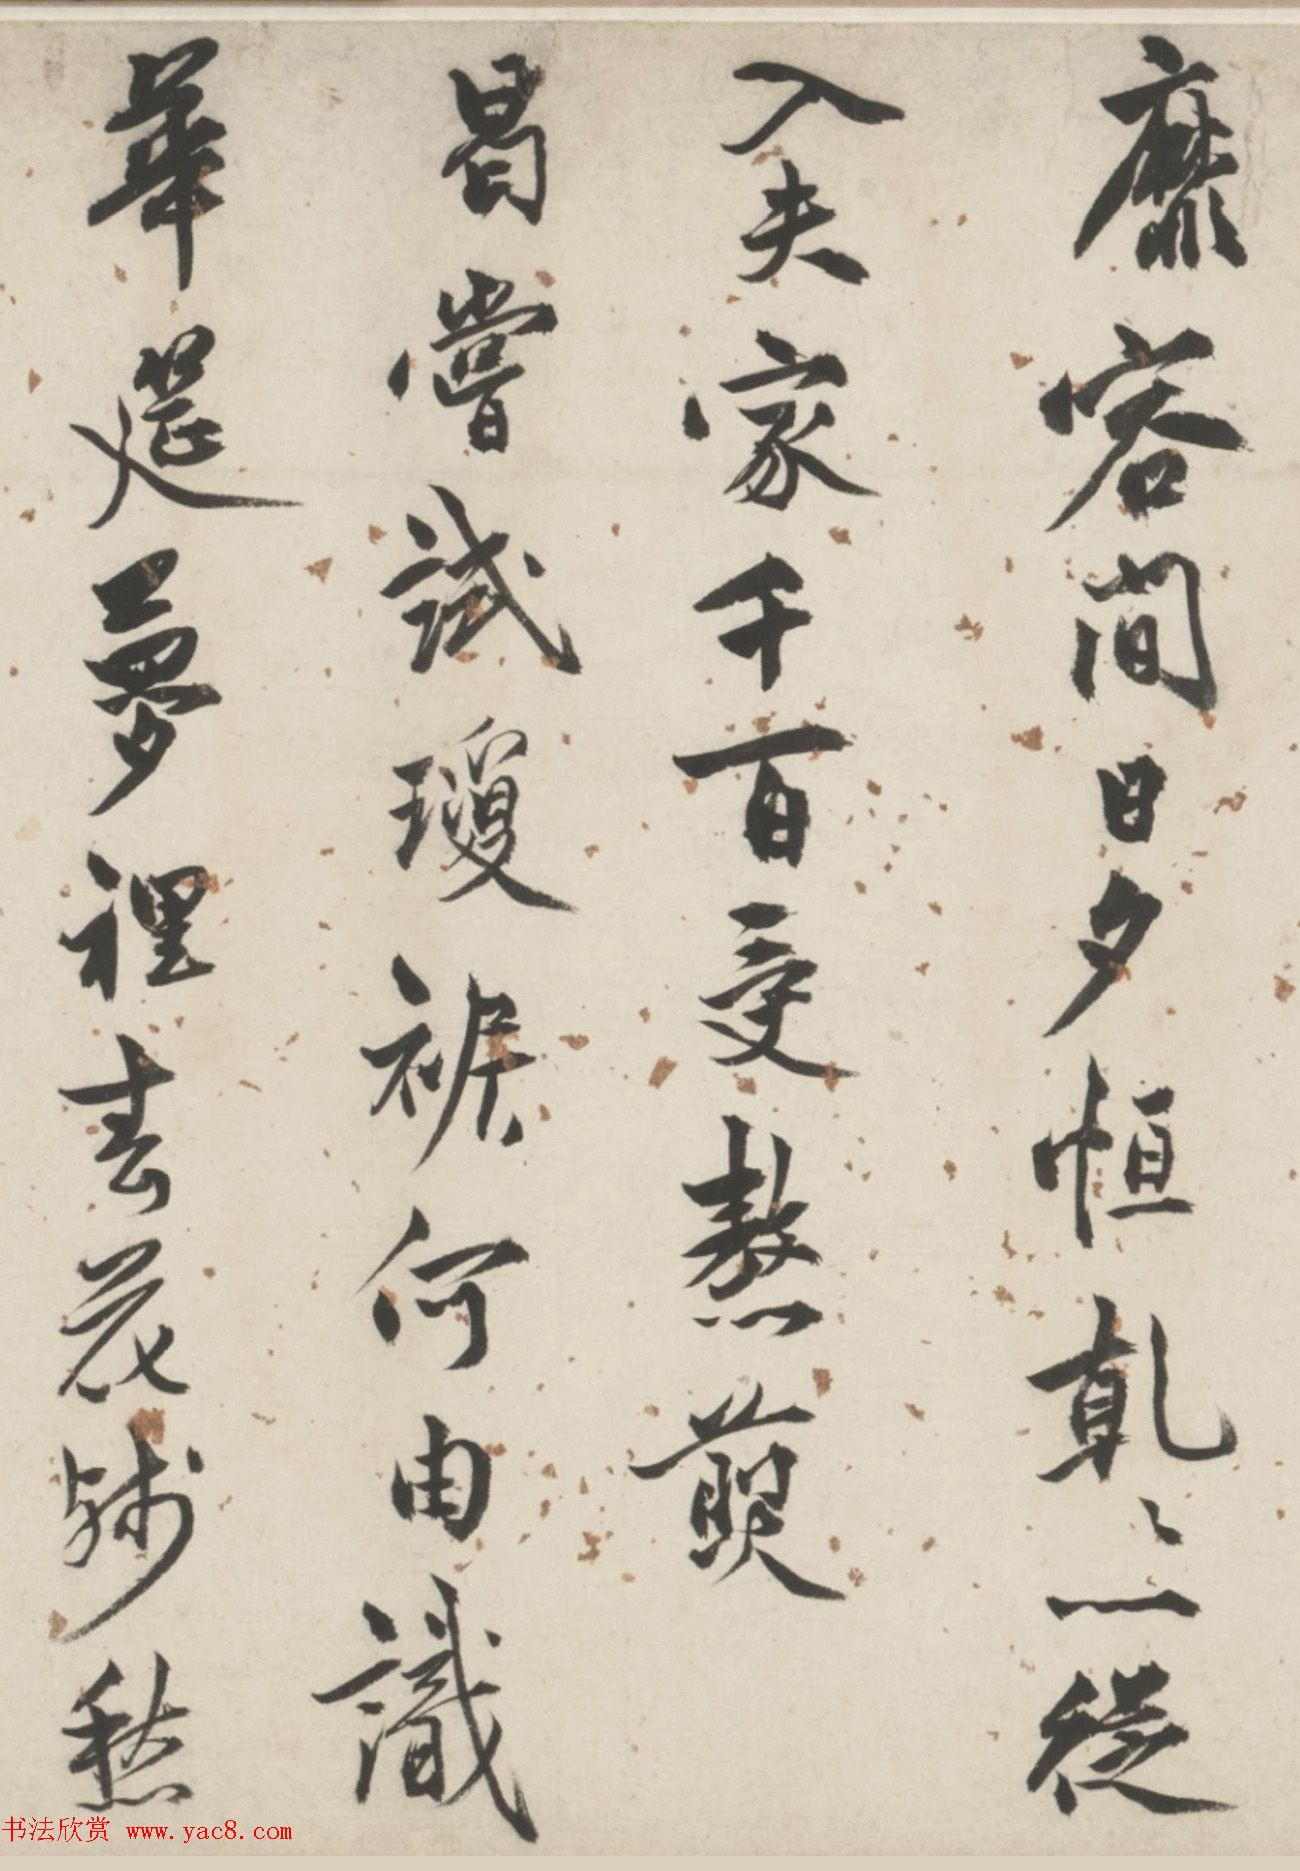 靡容間日夕恒乾〻一從
入夫家千百受熬煎
曷嘗試瓊裾何由識
華筵夢裡春花殘愁
书法欣赏 www.yac8.com